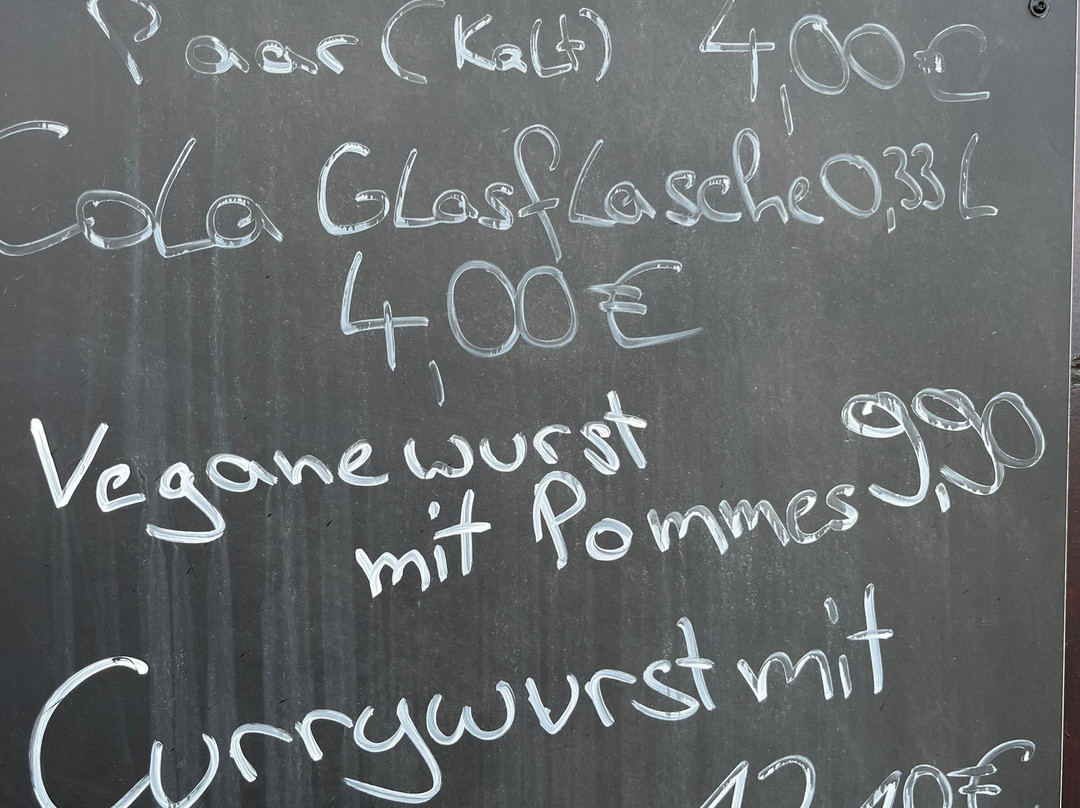 Paar (Kalt) 4,00 €
Cola Glasflasche 0,33 L
4,00 €
Vegane wurst 9,90
mit Pommes
Currywurst mit